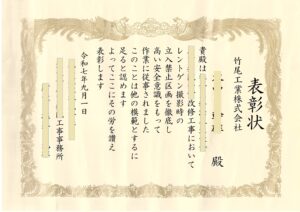 表彰状
竹尾工業株式会社
殿
貴殿は
改修工事において
レントゲン撮影時の
立入禁止区画を徹底し
高い安全意識をもって
作業に従事されました
このことは他の模範とするに
足ると認めます
よってここにその労を讃え
表彰します
令和七年九月一日
工事事務所